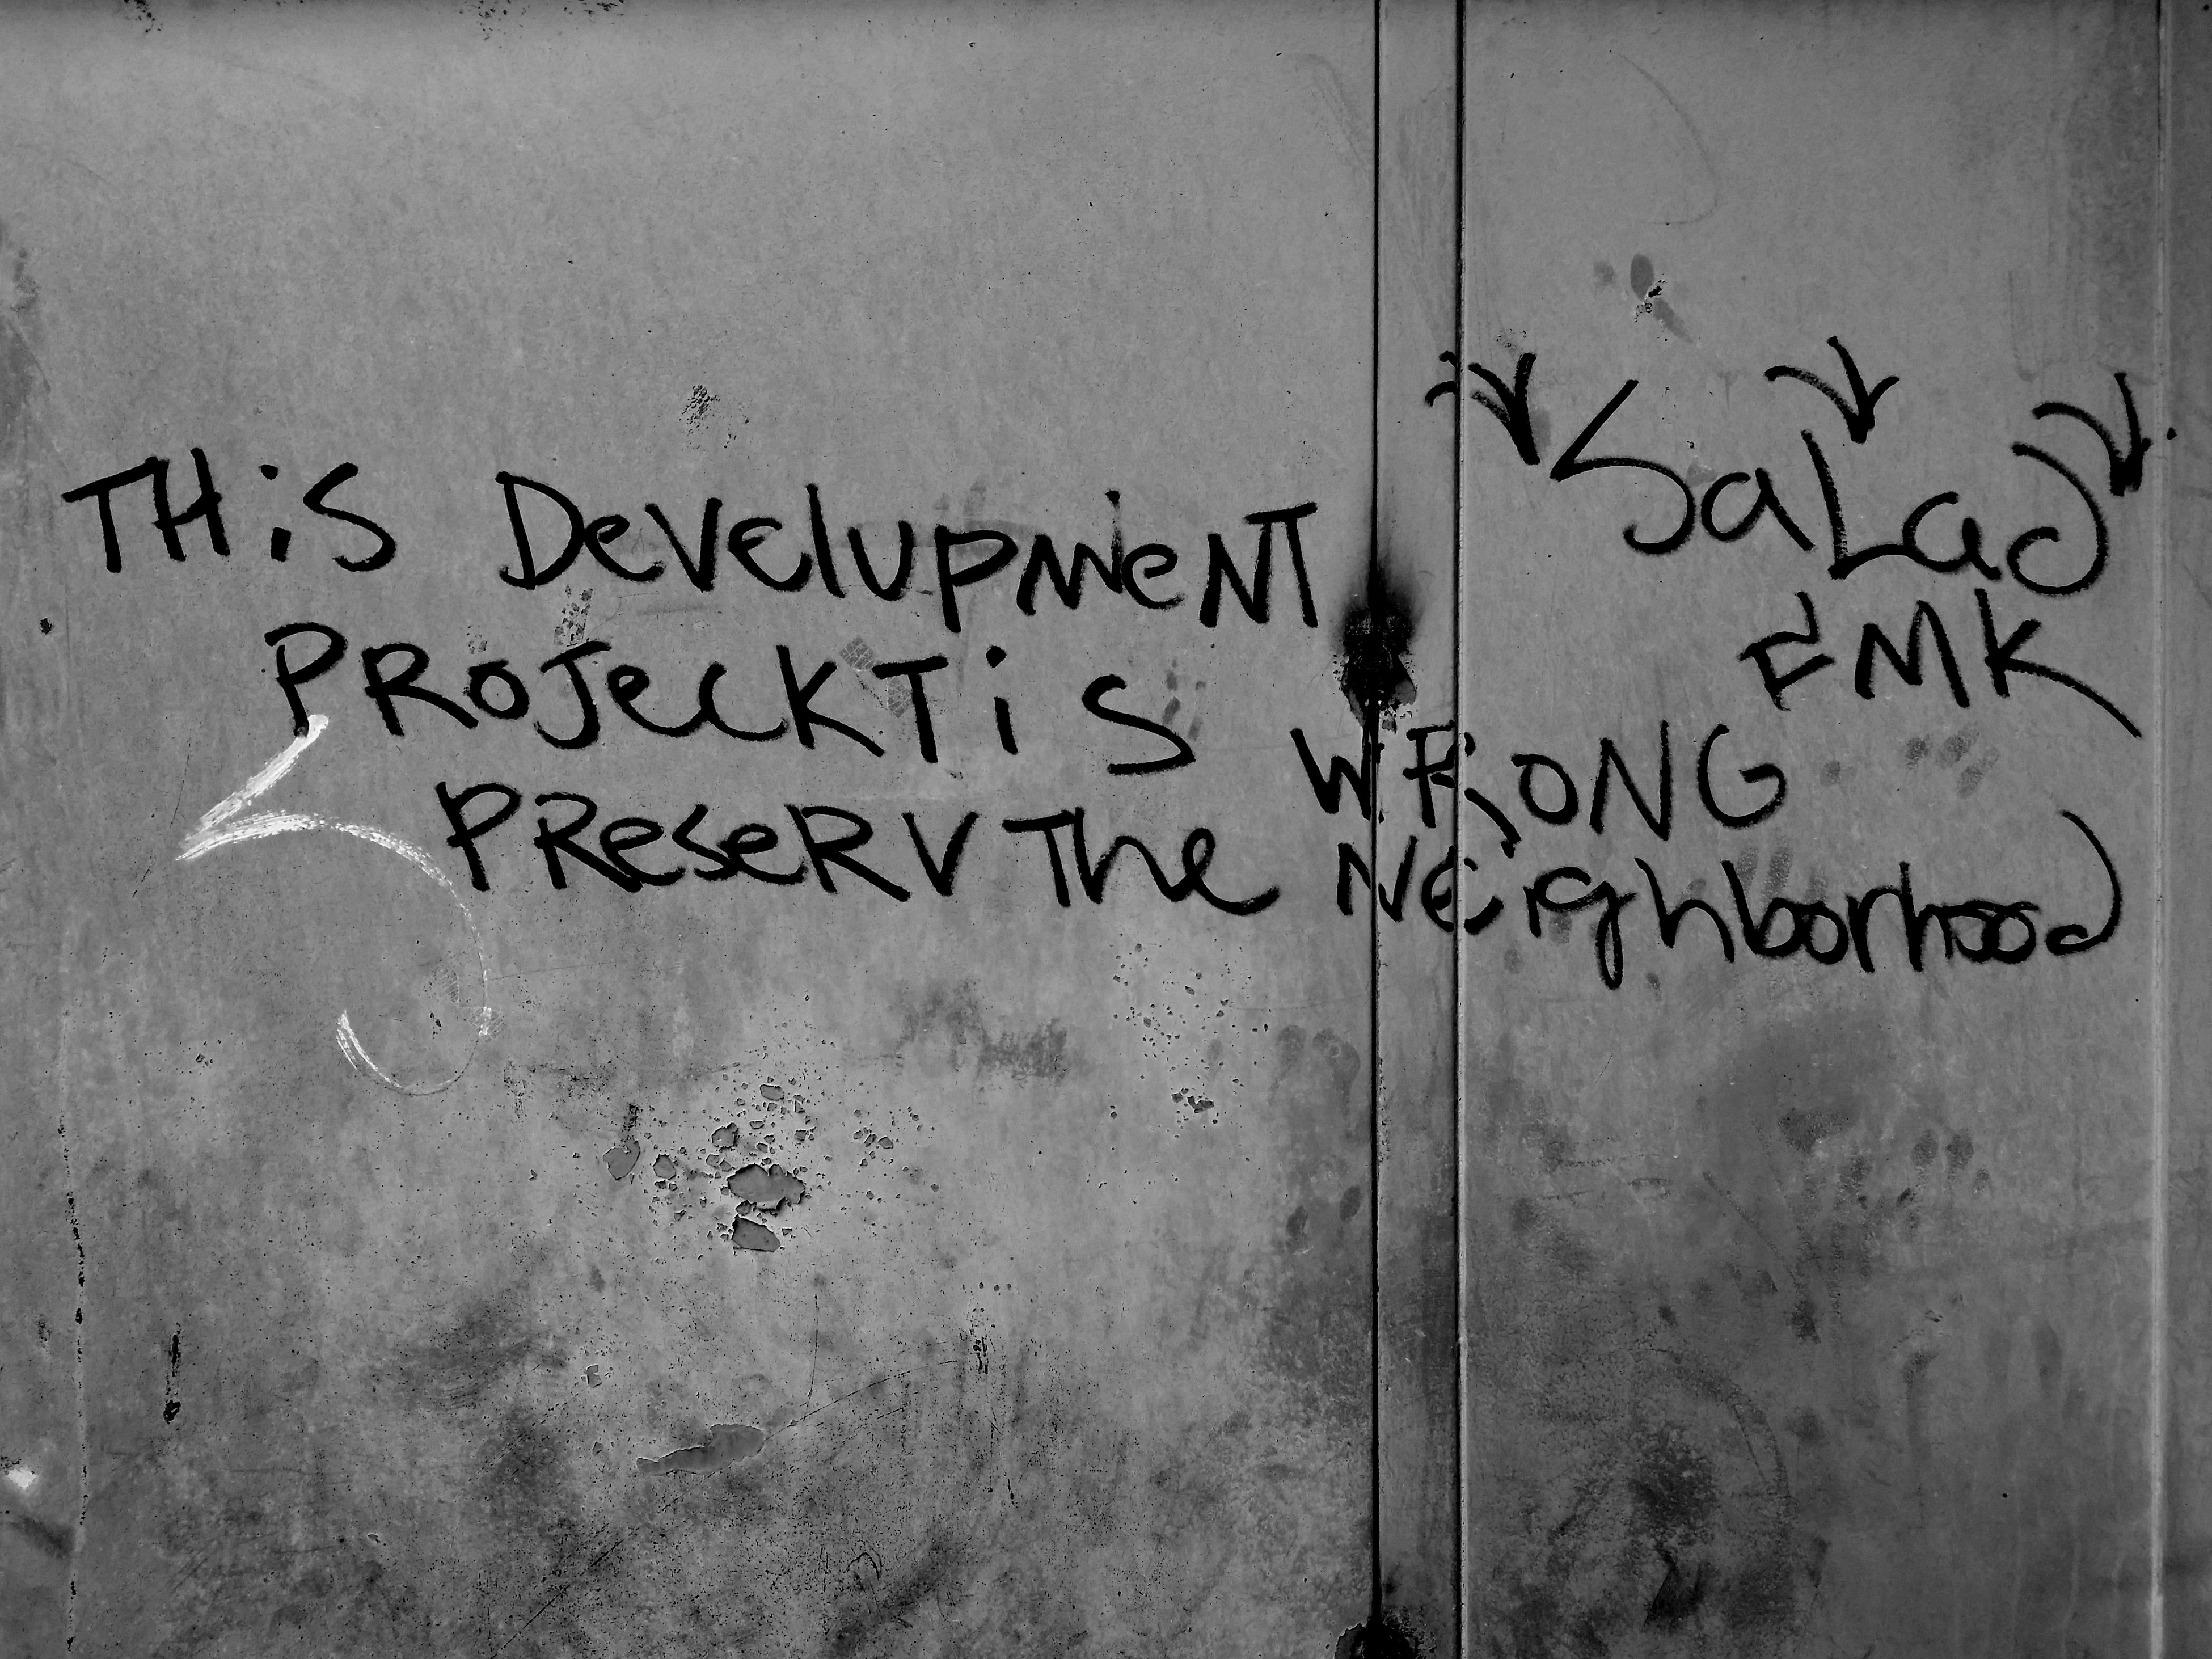 THiS DevelupmeNT
PROJeckT iS WRONG
PReseRV The NeighborhooD
SaLaD
FMK